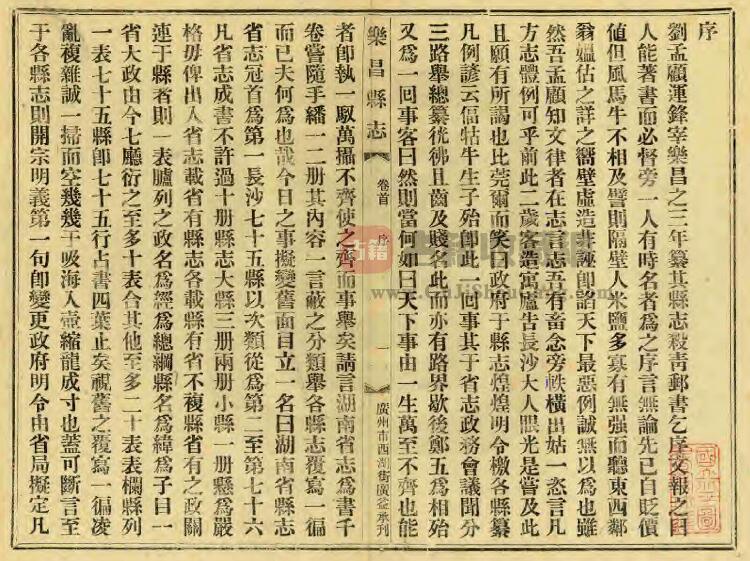 序
劉孟顧運鋒宰樂昌之三年纂其縣志殺青郵書乞序爰報之曰
人能著書而必督旁一人有時名者為之序言無論先已自貶價
値但風馬牛不相及譬則隔壁人米鹽多寡有無强而聽東西鄰
翁媼估之詳之嚮壁虛造非誣卽諂天下最惡例誠無以為也雖
然吾孟顧知文律者在志言志吾有畜念旁軼橫出姑一恣言凡
方志體例可乎前此二歲客造寓廬吿長沙大人眼光是嘗及此
且願有所謁也比莞爾而笑曰政府于縣志煌煌明令檄各縣纂
凡例諺云傴牯牛生子殆卽此一囘事其于省志政務會議聞分
三路舉總纂恍彿且齒及賤名此而亦有路界歇後鄭五為相殆
又為一囘事客曰然則當何如曰天下事由一生萬至不齊也能
樂昌縣志
卷首
序
一
廣州市西湖街廣益承刊
者卽執一馭萬攝不齊使之齊而事舉矣請言湖南省志為書千
卷嘗隨手繙一二册其內容一言蔽之分類舉各縣志覆寫一徧
而已夫何為也哉今日之事擬變舊面目立一名曰湖南省縣志
省志冠首為第一長沙七十五縣以次類從為第二至第七十六
凡省志成書不許過十册縣志大縣三册兩册小縣一册懸為嚴
格毋俾出入省志載省有縣志各載縣有省不複縣省有之政關
連于縣者則一表臚列之政名為經為總綱縣名為緯為子目一
省大政由今七廳衍之至多十表合其他至多二十表表欄縣列
一表七十五縣卽七十五行占書四葉止矣視舊之覆寫一徧凌
亂複雜誠一掃而空幾幾乎吸海入壺縮龍成寸也蓋可斷言至
于各縣志則開宗明義第一句卽變更政府明令由省局擬定凡